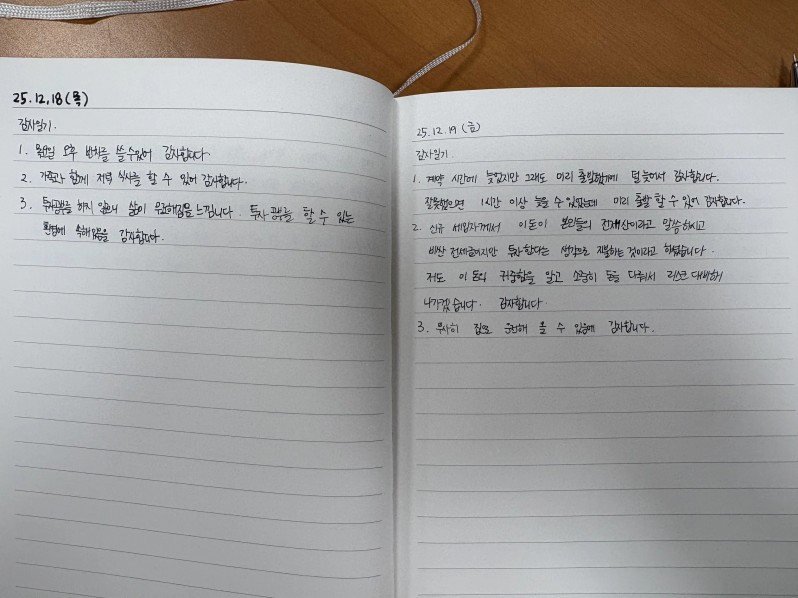 25.12.18(목)
감사일기.
1. 목요일 오후 반차를 쓸 수 있어 감사합니다.
2. 가족과 함께 저녁 식사를 할 수 있어 감사합니다.
3. 투자공부를 하지 않으니 삶이 무료해짐을 느낍니다. 투자 공부를 할 수 있는
환경에 속해있음을 감사합니다.
25.12.19 (금)
감사일기.
1. 계약 시간에 늦었지만 그래도 미리 출발했기에 덜 늦어서 감사합니다.
잘못했으면 1시간 이상 늦을 수 있었는데 미리 출발 할 수 있어 감사합니다.
2. 신규 세입자께서 이 돈이 본인들의 전재산이라고 말씀하시고
비싼 전세금이지만 투자한다는 생각으로 지불하는 것이라고 하셨습니다.
저도 이 돈의 귀중함을 알고 소중히 돈을 다뤄서 리스크 대비해
나가겠습니다. 감사합니다.
3. 무사히 집으로 운전해 올 수 있음에 감사합니다.